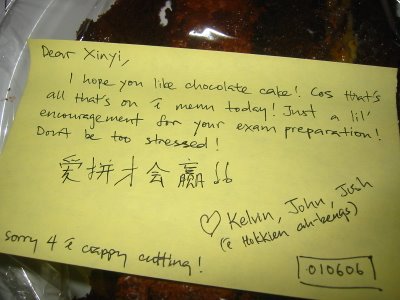 Dear Xinyi,
I hope you like chocolate cake! Cos that's
all that's on ē menu today! Just a lil'
encouragement for your exam preparation!
Don't be too stressed!
爱拼才会赢!!
♡ Kelvin, John, Jush
(ē Hokkien ah-bengs)
sorry 4 ē crappy cutting!
010606